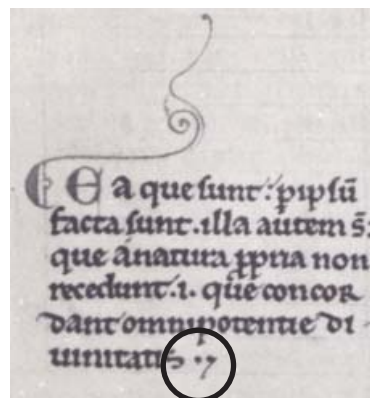 ¶ Ea que sunt: p ip̄sū
facta sunt .illa autem s̄:
que a natura ꝓpria non
recedunt .i. que concor
dant omnipotentie di
uinitatis .,